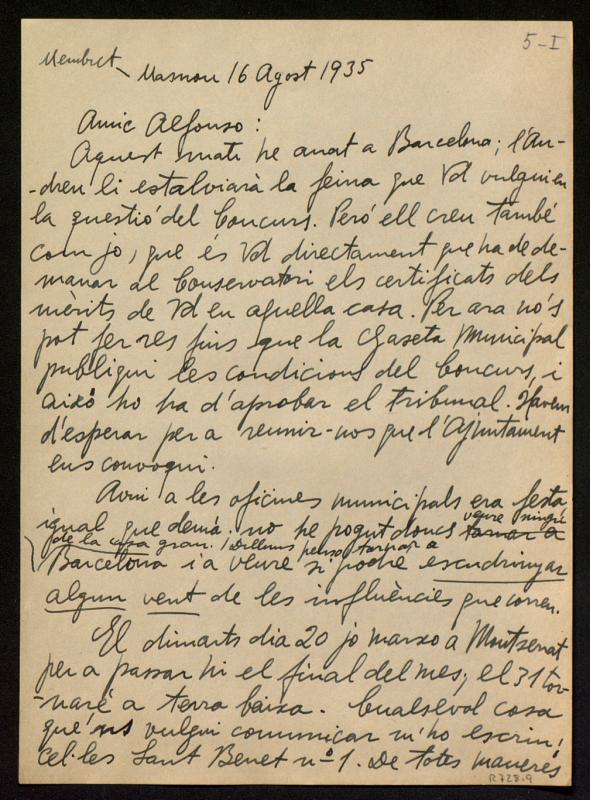 5-I
Membret
Masnou 16 Agost 1935
Amic Alfonso:
Aquest matí he anat a Barcelona; l'An-
-dreu li estalviarà la feina que Vd vulgui en
la questió del Concurs. Peró ell creu també
com jo, que és Vd directament que ha de de-
manar al Conservatori els certificats dels
mèrits de Vd en aquella casa. Per ara no's
pot fer res fins que la Gaseta Municipal
publiqui les condicions del Concurs, i
aixó ho ha d'aprobar el tribunal. Havem
d'esperar per a reunir-nos que l'Ajuntament
ens convoqui.
Avui a les oficines municipals era festa
igual que demà. no he pogut doncs tornar a
veure ningú
de la casa gran. Dilluns penso tornar a
Barcelona i a veure si podré escudrinyar
algun vent de les influències que corren.
El dimarts dia 20 jo marxo a Montserrat
per a passar hi el final del mes; el 31 tor-
-naré a terra baixa. Cualsevol cosa
que'ns vulgui comunicar m'ho escriu!
Cel·les Sant Benet nº 1. De totes maneres
R.728.9